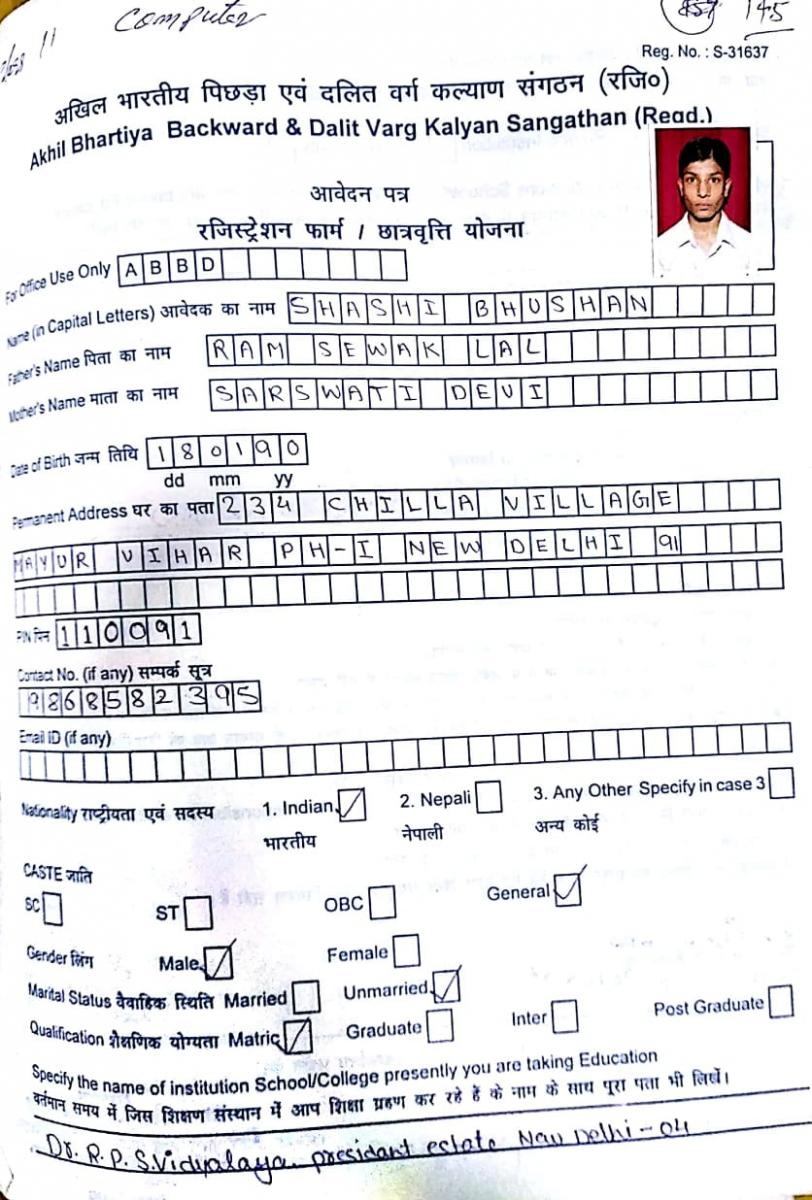 Computer
145
Reg. No. : S-31637
अखिल भारतीय पिछड़ा एवं दलित वर्ग कल्याण संगठन (रजि०)
Akhil Bhartiya Backward & Dalit Varg Kalyan Sangathan (Read.)
आवेदन पत्र
रजिस्ट्रेशन फार्म / छात्रवृत्ति योजना
For Office Use Only ABBD
Name (in Capital Letters) आवेदक का नाम SHASHI BHUSHAN
Father's Name पिता का नाम RAM SEWAK LAL
Mother's Name माता का नाम SARSWATI DEVI
Date of Birth जन्म तिथि 180190
dd mm yy
Permanent Address घर का पता 234 CHILLA VILLAGE
MAYUR VIHAR PH-I NEW DELHI 91
PIN पिन 110091
Contact No. (if any) सम्पर्क सूत्र
9868582395
Email ID (if any)
Nationality राष्ट्रीयता एवं सदस्य 1. Indian 2. Nepali 3. Any Other Specify in case 3
भारतीय नेपाली अन्य कोई
CASTE जाति
SC ST OBC General
Gender लिंग Male Female
Marital Status वैवाहिक स्थिति Married Unmarried
Qualification शैक्षणिक योग्यता Matric Graduate Inter Post Graduate
Specify the name of institution School/College presently you are taking Education
वर्तमान समय में जिस शिक्षण संस्थान में आप शिक्षा ग्रहण कर रहे हैं के नाम के साथ पूरा पता भी लिखें।
Dr. R. P. S. Vidyalaya president estate New Delhi - 04